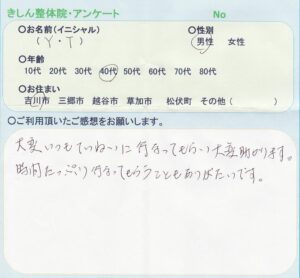 きしん整体院・アンケート No
〇お名前(イニシャル) 〇性別
(Y・T) 男性 女性
〇年齢
10代 20代 30代 40代 50代 60代 70代 80代
〇お住まい
吉川市 三郷市 越谷市 草加市 松伏町 その他( )
〇ご利用頂いたご感想をお願いします。
大変いつもていねいに行なってもらい大変助かります。
時間たっぷり行なってもらうこともありがたいです。